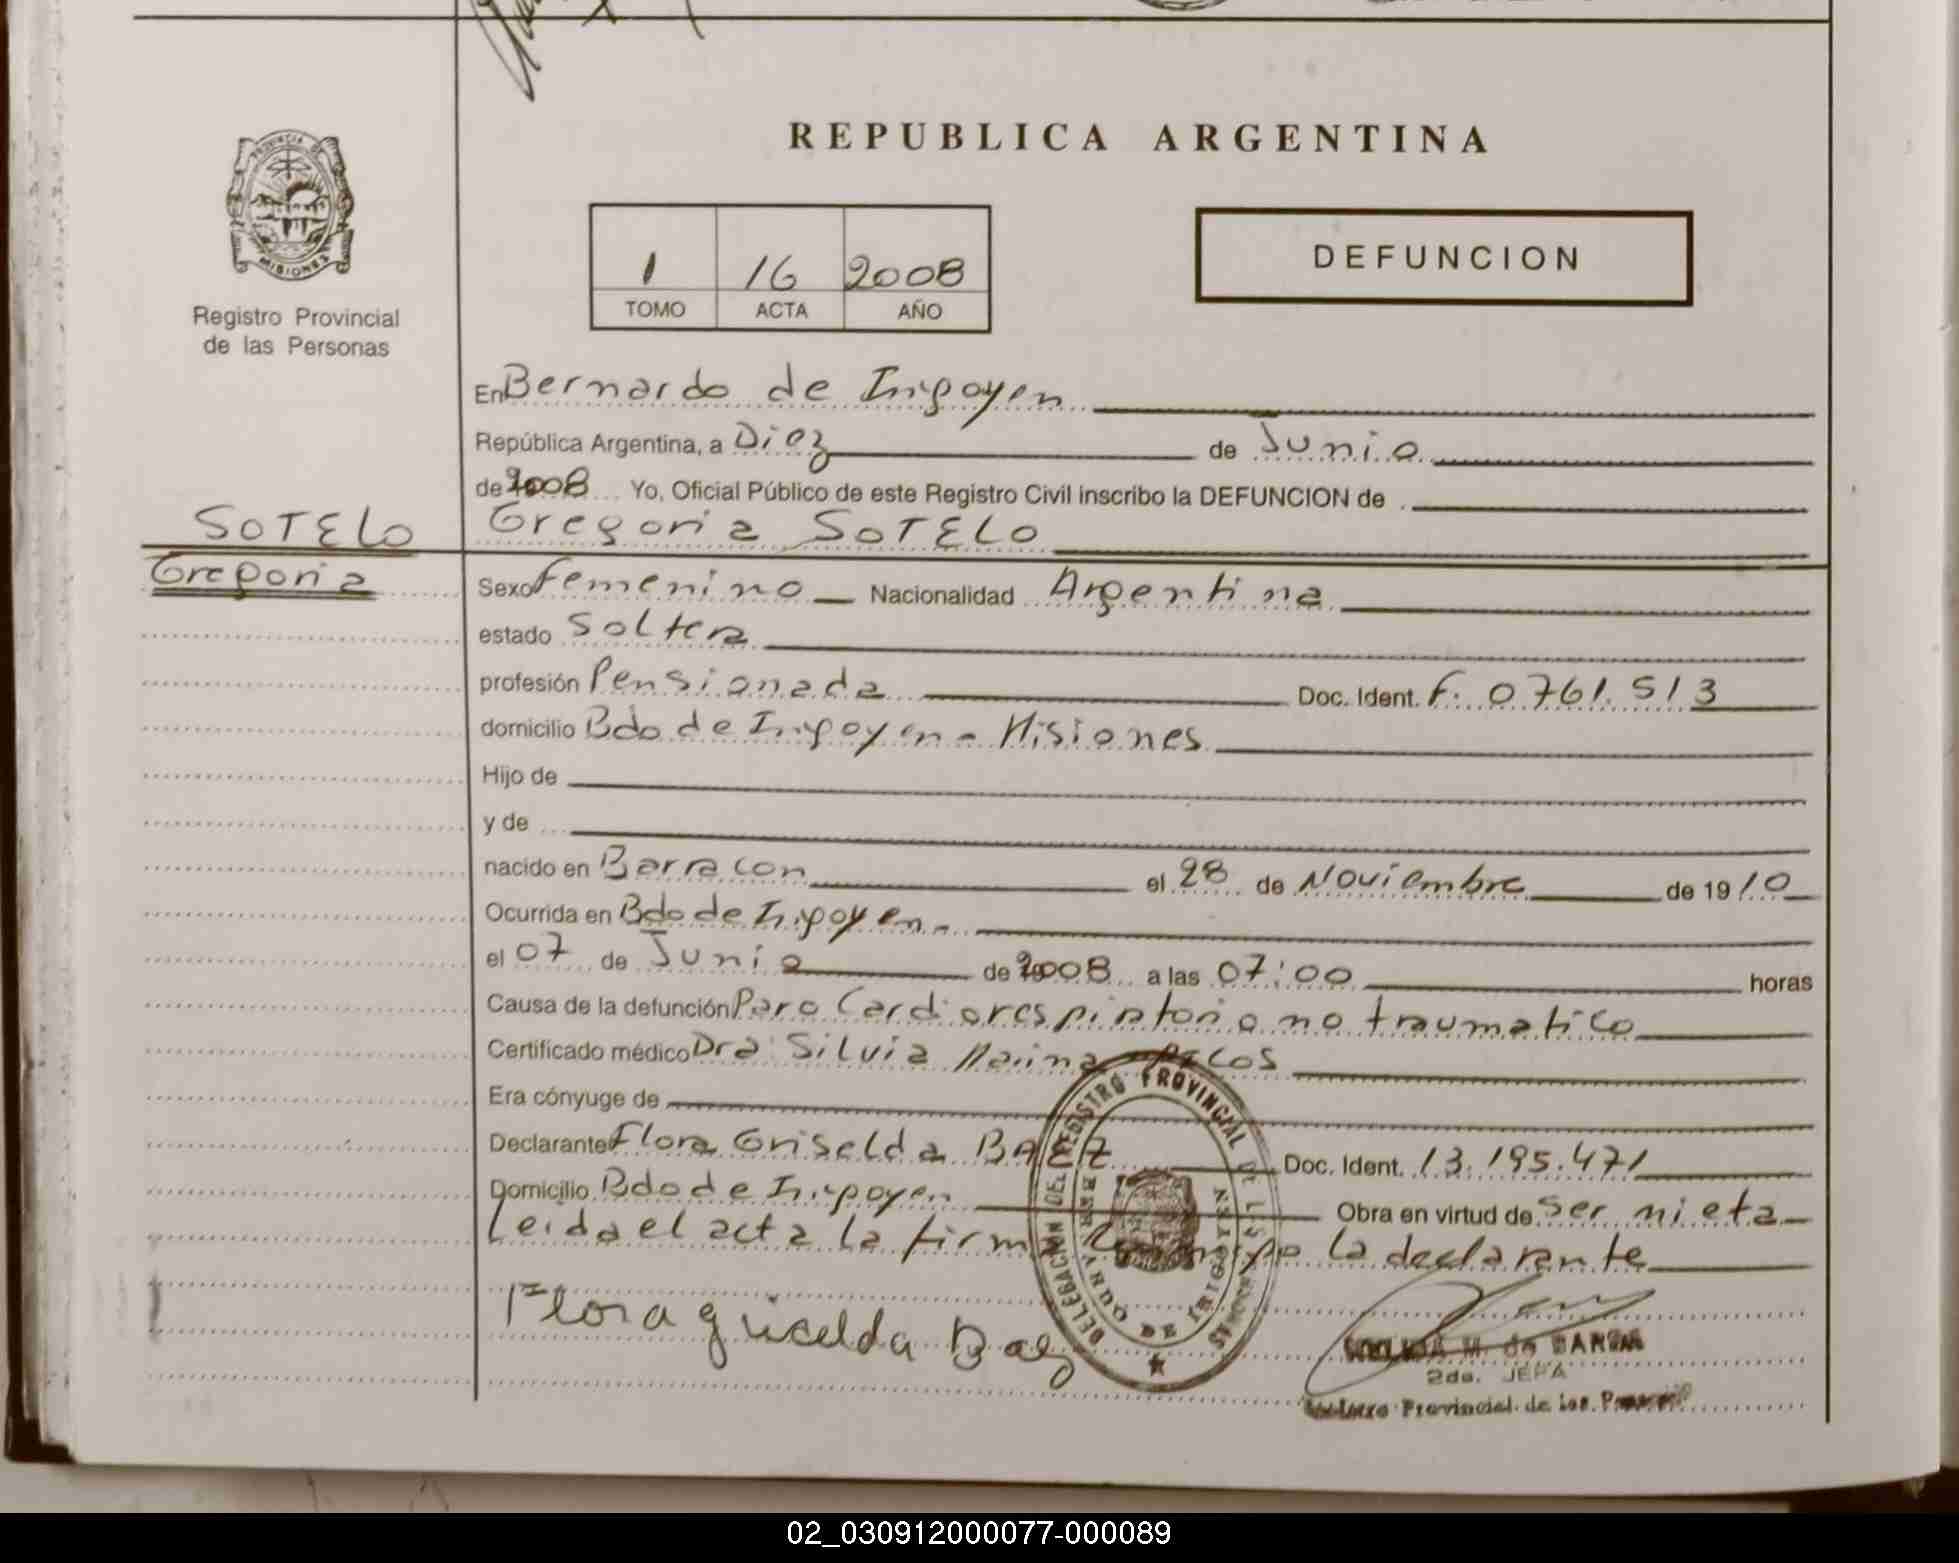 REPUBLICA ARGENTINA
PROVINCIA DE
MISIONES
Registro Provincial
de las Personas
1 16 2008
TOMO ACTA AÑO
DEFUNCION
En Bernardo de Irigoyen
República Argentina, a Diez de Junio
de 2008 Yo, Oficial Público de este Registro Civil inscribo la DEFUNCION de
SOTELO
Gregoria
Gregoria SOTELO
Sexo Femenino Nacionalidad Argentina
estado Soltera
profesión Pensionada Doc. Ident. F. 0761.513
domicilio Bdo de Irigoyen - Misiones
Hijo de
y de
nacido en Barracon el 28 de Noviembre de 1910
Ocurrida en Bdo de Irigoyen -
el 07 de Junio de 2008 a las 07:00 horas
Causa de la defunción Paro Cardiorespiratorio no traumatico
Certificado médico Dra Silvia
Era cónyuge de
Declarante Flora Griselda BAEZ Doc. Ident. 13.195.471
Domicilio Bdo de Irigoyen Obra en virtud de ser nieta
Leida el acta la firma conmigo la declarante
Flora griselda Baez
DELEGACION DEL REGISTRO PROVINCIAL DE LAS PERSONAS
BERNARDO DE IRIGOYEN
M. de
2da. JEFA
Provincial de las
02_030912000077-000089